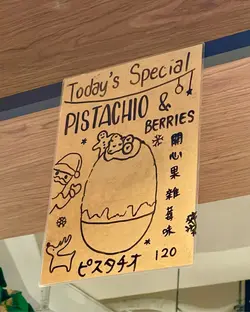 Today's Special
PISTACHIO &
BERRIES
開心果雜莓味
ピスタチオ
120